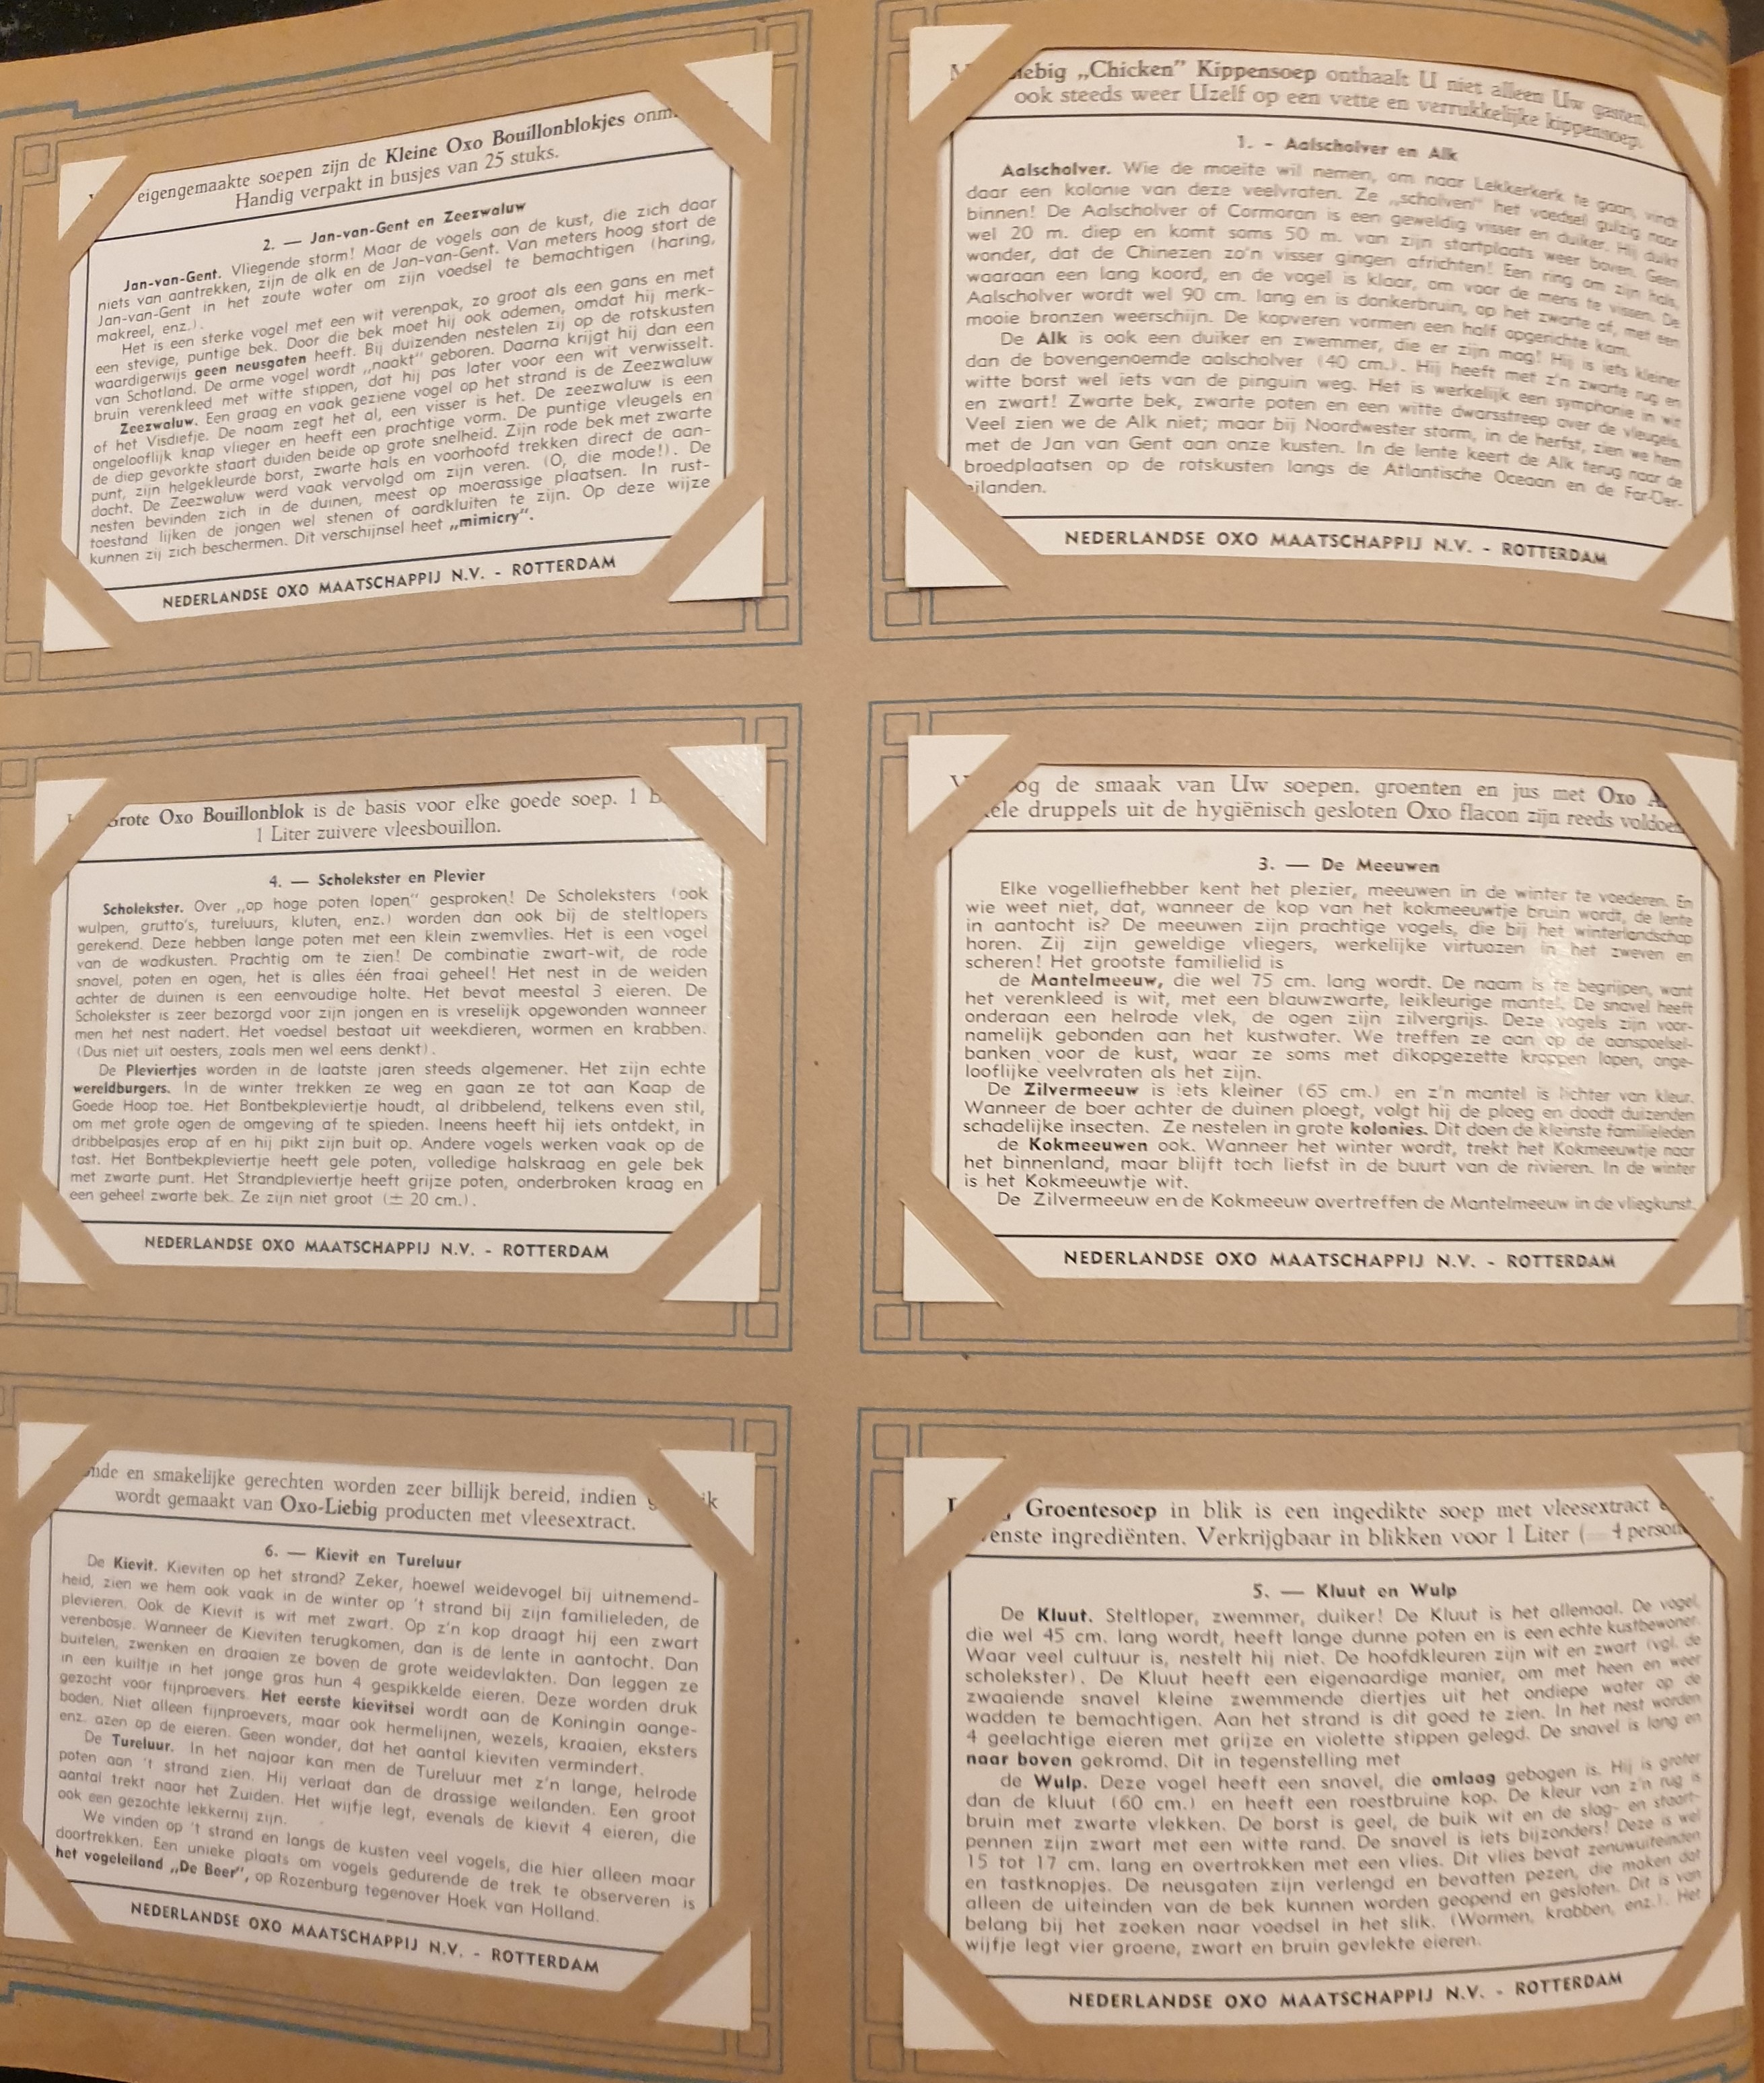 eigengemaakte soepen zijn de Kleine Oxo Bouillonblokjes
Handig verpakt in busjes van 25 stuks.
2. — Jan-van-Gent en Zeezwaluw
Jan-van-Gent. Vliegende storm! Maar de vogels aan de kust, die zich daar
niets van aantrekken, zijn de alk en de Jan-van-Gent. Van meters hoog stort de
Jan-van-Gent in het zoute water om zijn voedsel te bemachtigen (haring,
makreel, enz.).
Het is een sterke vogel met een wit verenpak, zo groot als een gans en met
een stevige, puntige bek. Door die bek moet hij ook ademen, omdat hij merk-
waardigerwijs geen neusgaten heeft. Bij duizenden nestelen zij op de rotskusten
van Schotland. De arme vogel wordt „naakt" geboren. Daarna krijgt hij dan een
bruin verenkleed met witte stippen, dat hij pas later voor een wit verwisselt.
Zeezwaluw. Een graag en vaak geziene vogel op het strand is de Zeezwaluw
of het Visdiefje. De naam zegt het al, een visser is het. De zeezwaluw is een
ongelooflijk knap vlieger en heeft een prachtige vorm. De puntige vleugels en
de diep gevorkte staart duiden beide op grote snelheid. Zijn rode bek met zwarte
punt, zijn helgekleurde borst, zwarte hals en voorhoofd trekken direct de aan-
dacht. De Zeezwaluw werd vaak vervolgd om zijn veren. (O, die mode!). De
nesten bevinden zich in de duinen, meest op moerassige plaatsen. In rust-
toestand lijken de jongen wel stenen of aardkluiten te zijn. Op deze wijze
kunnen zij zich beschermen. Dit verschijnsel heet „mimicry".
NEDERLANDSE OXO MAATSCHAPPIJ N.V. - ROTTERDAM
„Chicken" Kippensoep onthaalt U niet alleen Uw gasten,
ook steeds weer Uzelf op een vette en verrukkelijke kippensoep.
1. - Aalscholver en Alk
Aalscholver. Wie de moeite wil nemen, om naar Lekkerkerk te gaan, vindt
daar een kolonie van deze veelvraten. Ze „scholven" het voedsel gulzig naar
binnen! De Aalscholver of Cormoran is een geweldig visser en duiker. Hij duikt
wel 20 m. diep en komt soms 50 m. van zijn startplaats weer boven. Geen
wonder, dat de Chinezen zo'n visser gingen africhten! Een ring om zijn hals,
waaraan een lang koord, en de vogel is klaar, om voor de mens te vissen. De
Aalscholver wordt wel 90 cm. lang en is donkerbruin, op het zwarte af, met een
mooie bronzen weerschijn. De kopveren vormen een half opgerichte kam.
De Alk is ook een duiker en zwemmer, die er zijn mag! Hij is iets kleiner
dan de bovengenoemde aalscholver (40 cm.). Hij heeft met z'n zwarte rug en
witte borst wel iets van de pinguin weg. Het is werkelijk een symphonie in wit
en zwart! Zwarte bek, zwarte poten en een witte dwarsstreep over de vleugels.
Veel zien we de Alk niet; maar bij Noordwester storm, in de herfst, zien we hem
met de Jan van Gent aan onze kusten. In de lente keert de Alk terug naar de
broedplaatsen op de rotskusten langs de Atlantische Oceaan en de Far-Oer-
eilanden.
NEDERLANDSE OXO MAATSCHAPPIJ N.V. - ROTTERDAM
Grote Oxo Bouillonblok is de basis voor elke goede soep. 1
1 Liter zuivere vleesbouillon.
4. — Scholekster en Plevier
Scholekster. Over „op hoge poten lopen" gesproken! De Scholeksters (ook
wulpen, grutto's, tureluurs, kluten, enz.) worden dan ook bij de steltlopers
gerekend. Deze hebben lange poten met een klein zwemvlies. Het is een vogel
van de wadkusten. Prachtig om te zien! De combinatie zwart-wit, de rode
snavel, poten en ogen, het is alles één fraai geheel! Het nest in de weiden
achter de duinen is een eenvoudige holte. Het bevat meestal 3 eieren. De
Scholekster is zeer bezorgd voor zijn jongen en is vreselijk opgewonden wanneer
men het nest nadert. Het voedsel bestaat uit weekdieren, wormen en krabben.
(Dus niet uit oesters, zoals men wel eens denkt).
De Pleviertjes worden in de laatste jaren steeds algemener. Het zijn echte
wereldburgers. In de winter trekken ze weg en gaan ze tot aan Kaap de
Goede Hoop toe. Het Bontbekpleviertje houdt, al dribbelend, telkens even stil,
om met grote ogen de omgeving af te spieden. Ineens heeft hij iets ontdekt, in
dribbelpasjes erop af en hij pikt zijn buit op. Andere vogels werken vaak op de
tast. Het Bontbekpleviertje heeft gele poten, volledige halskraag en gele bek
met zwarte punt. Het Strandpleviertje heeft grijze poten, onderbroken kraag en
een geheel zwarte bek. Ze zijn niet groot (± 20 cm.).
NEDERLANDSE OXO MAATSCHAPPIJ N.V. - ROTTERDAM
de smaak van Uw soepen, groenten en jus met Oxo
druppels uit de hygiënisch gesloten Oxo flacon zijn reeds
3. — De Meeuwen
Elke vogelliefhebber kent het plezier, meeuwen in de winter te voederen. En
wie weet niet, dat, wanneer de kop van het kokmeeuwtje bruin wordt, de lente
in aantocht is? De meeuwen zijn prachtige vogels, die bij het winterlandschap
horen. Zij zijn geweldige vliegers, werkelijke virtuozen in het zweven en
scheren! Het grootste familielid is
de Mantelmeeuw, die wel 75 cm. lang wordt. De naam is te begrijpen, want
het verenkleed is wit, met een blauwzwarte, leikleurige mantel. De snavel heeft
onderaan een helrode vlek, de ogen zijn zilvergrijs. Deze vogels zijn voor-
namelijk gebonden aan het kustwater. We treffen ze aan op de aanspoelsel-
banken voor de kust, waar ze soms met dikopgezette kroppen lopen, onge-
looflijke veelvraten als het zijn.
De Zilvermeeuw is iets kleiner (65 cm.) en z'n mantel is lichter van kleur.
Wanneer de boer achter de duinen ploegt, volgt hij de ploeg en doodt duizenden
schadelijke insecten. Ze nestelen in grote kolonies. Dit doen de kleinste familieleden
de Kokmeeuwen ook. Wanneer het winter wordt, trekt het Kokmeeuwtje naar
het binnenland, maar blijft toch liefst in de buurt van de rivieren. In de winter
is het Kokmeeuwtje wit.
De Zilvermeeuw en de Kokmeeuw overtreffen de Mantelmeeuw in de vliegkunst.
NEDERLANDSE OXO MAATSCHAPPIJ N.V. - ROTTERDAM
en smakelijke gerechten worden zeer billijk bereid, indien
wordt gemaakt van Oxo-Liebig producten met vleesextract.
6. — Kievit en Tureluur
De Kievit. Kieviten op het strand? Zeker, hoewel weidevogel bij uitnemend-
heid, zien we hem ook vaak in de winter op 't strand bij zijn familieleden, de
plevieren. Ook de Kievit is wit met zwart. Op z'n kop draagt hij een zwart
verenbosje. Wanneer de Kieviten terugkomen, dan is de lente in aantocht. Dan
buitelen, zwenken en draaien ze boven de grote weidevlakten. Dan leggen ze
in een kuiltje in het jonge gras hun 4 gespikkelde eieren. Deze worden druk
gezocht voor fijnproevers. Het eerste kievitsei wordt aan de Koningin aange-
boden. Niet alleen fijnproevers, maar ook hermelijnen, wezels, kraaien, eksters
enz. azen op de eieren. Geen wonder, dat het aantal kieviten vermindert.
De Tureluur. In het najaar kan men de Tureluur met z'n lange, helrode
poten aan 't strand zien. Hij verlaat dan de drassige weilanden. Een groot
aantal trekt naar het Zuiden. Het wijfje legt, evenals de kievit 4 eieren, die
ook een gezochte lekkernij zijn.
We vinden op 't strand en langs de kusten veel vogels, die hier alleen maar
doortrekken. Een unieke plaats om vogels gedurende de trek te observeren is
het vogeleiland „De Beer", op Rozenburg tegenover Hoek van Holland.
NEDERLANDSE OXO MAATSCHAPPIJ N.V. - ROTTERDAM
Groentesoep in blik is een ingedikte soep met vleesextract
ingrediënten. Verkrijgbaar in blikken voor 1 Liter (= 4
5. — Kluut en Wulp
De Kluut. Steltloper, zwemmer, duiker! De Kluut is het allemaal. De vogel,
die wel 45 cm. lang wordt, heeft lange dunne poten en is een echte kustbewoner.
Waar veel cultuur is, nestelt hij niet. De hoofdkleuren zijn wit en zwart (vgl. de
scholekster). De Kluut heeft een eigenaardige manier, om met heen en weer
zwaaiende snavel kleine zwemmende diertjes uit het ondiepe water op de
wadden te bemachtigen. Aan het strand is dit goed te zien. In het nest worden
4 geelachtige eieren met grijze en violette stippen gelegd. De snavel is lang en
naar boven gekromd. Dit in tegenstelling met
de Wulp. Deze vogel heeft een snavel, die omlaag gebogen is. Hij is groter
dan de kluut (60 cm.) en heeft een roestbruine kop. De kleur van z'n rug is
bruin met zwarte vlekken. De borst is geel, de buik wit en de slag- en staart-
pennen zijn zwart met een witte rand. De snavel is iets bijzonders! Deze is wel
15 tot 17 cm. lang en overtrokken met een vlies. Dit vlies bevat zenuwuiteinden
en tastknopjes. De neusgaten zijn verlengd en bevatten pezen, die maken dat
alleen de uiteinden van de bek kunnen worden geopend en gesloten. Dit is van
belang bij het zoeken naar voedsel in het slik. (Wormen, krabben, enz.). Het
wijfje legt vier groene, zwart en bruin gevlekte eieren.
NEDERLANDSE OXO MAATSCHAPPIJ N.V. - ROTTERDAM